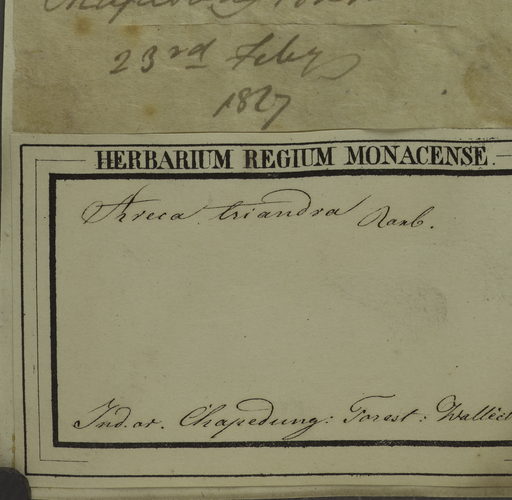 23rd Feby
1827
HERBARIUM REGIUM MONACENSE.
Areca triandra Roxb.
Ind. or. Chapedung: Forest: Wallich